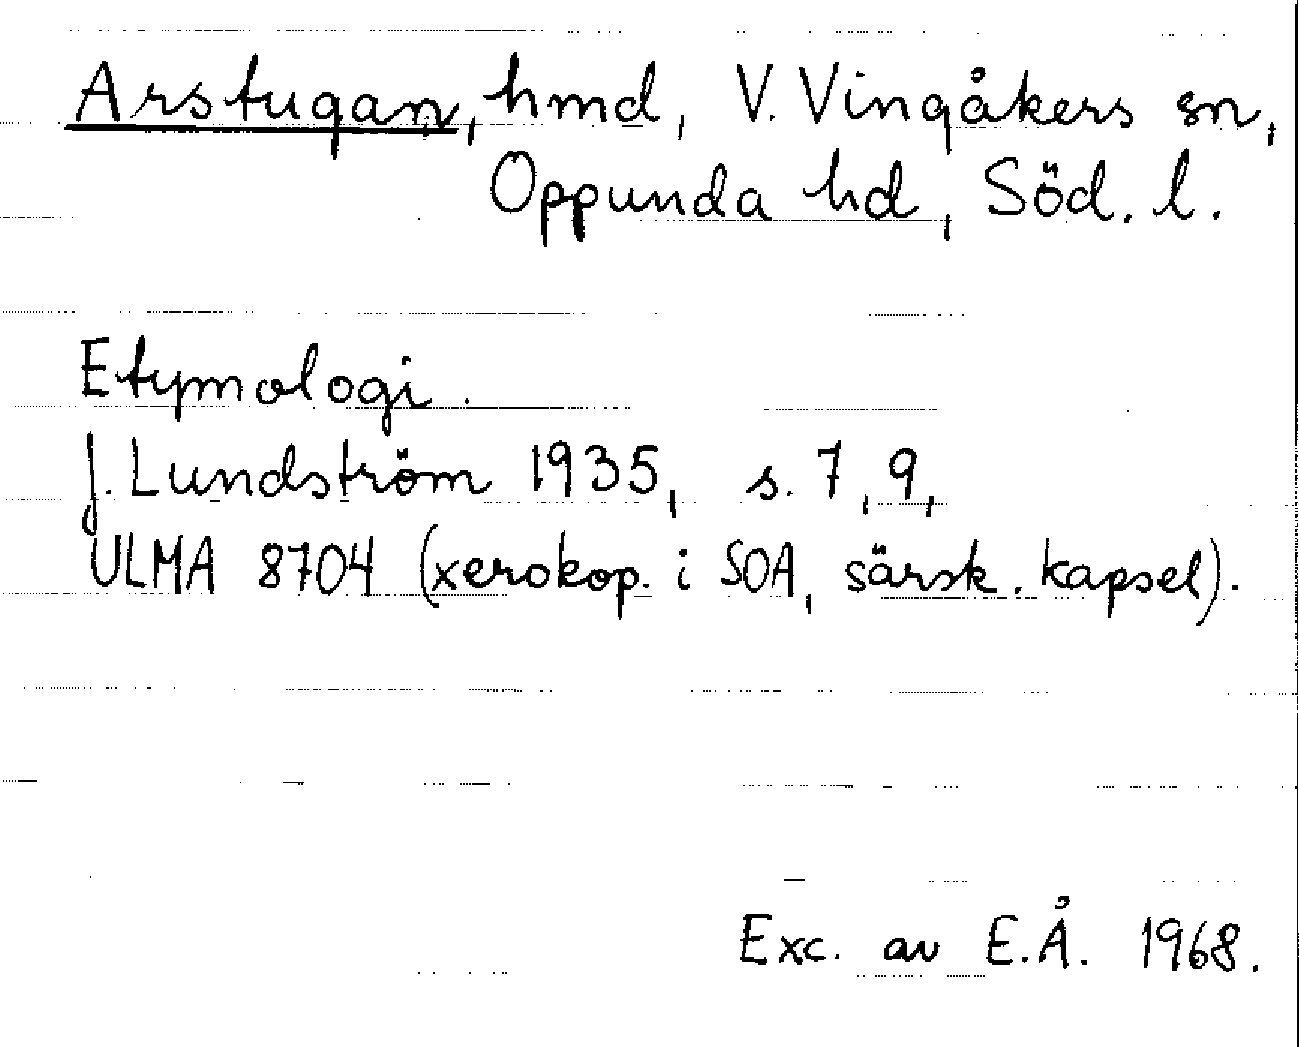 Arstugan, hmd, V. Vingåkers sn,
Oppunda hd, Söd. l.
Etymologi.
J. Lundström 1935, s. 7, 9,
ULMA 8704 (xerokop. i SOA, särsk. kapsel).
Exc. av E.Å. 1968.